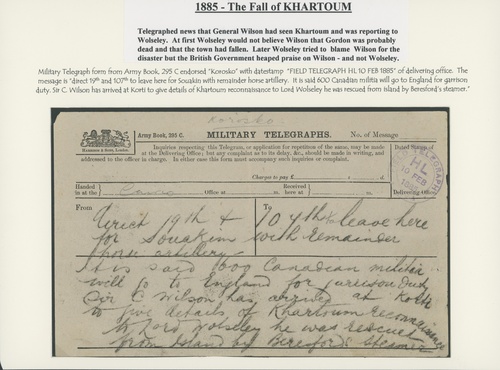 1885 - The Fall of KHARTOUM
Telegraphed news that General Wilson had seen Khartoum and was reporting to
Wolseley. At first Wolseley would not believe Wilson that Gordon was probably
dead and that the town had fallen. Later Wolseley tried to blame Wilson for the
disaster but the British Government heaped praise on Wilson - and not Wolseley.
Military Telegraph form from Army Book, 295 C endorsed "Korosko" with datestamp "FIELD TELEGRAPH HL 10 FEB 1885" of delivering office. The
message is "direct 19th and 107th to leave here for Souakim with remainder horse artillery. It is said 600 Canadian militia will go to England for garrison
duty. Sir C. Wilson has arrived at Korti to give details of Khartoum reconnaissance to Lord Wolseley he was rescued from island by Beresford's steamer."
Korosko
Army Book, 295 C.
MILITARY TELEGRAPHS.
No. of Message
Harrison & Sons, London.
Inquiries respecting this Telegram, or application for repetition of the same, may be made
at the Delivering Office; but any complaint as to its delay, &c., should be made in writing, and
addressed to the officer in charge. In either case this form must accompany such inquiries or complaint.
Dated Stamp of
TELEGRAPH
HL
10 FEB
Delivering Office
Charges to pay £ s. d.
Handed in at the
Cairo
Office at
Received here at
From
To
direct 19th & 107th to leave here
for Souakim with remainder
horse artillery
It is said 600 Canadian militia
will go to England for garrison duty
Sir C Wilson has arrived at Korti
to give details of Khartoum reconnaissance
to Lord Wolseley he was rescued
from Island by Beresfords Steamer